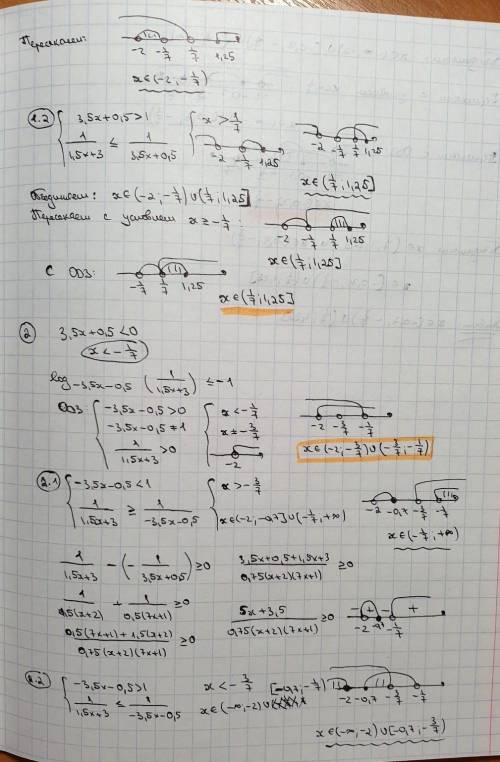 Пересекаем:
-2 -1/7 1/7 1,25
x∈(-2; -1/7)
1.2 { 3,5x+0,5>1 { x > 1/7
1/(1,5x+3) ≤ 1/(3,5x+0,5) -2 -1/7 1,25 -2 -1/7 1/7 1,25
x∈(1/7; 1,25]
Объединяем: x∈(-2; -1/7)∪(1/7; 1,25]
Пересекаем с условием x≥-1/7: -2 -1/7 1/7 1,25
x∈(1/7; 1,25]
С ОДЗ: -1/7 1/7 1,25
x∈(1/7; 1,25]
2 3,5x+0,5<0
x<-1/7
log -3,5x-0,5 (1/(1,5x+3)) ≤ -1
ОДЗ: { -3,5x-0,5>0 { x<-1/7
-3,5x-0,5≠1 x≠-3/7 -2 -3/7 -1/7
1/(1,5x+3) >0 -2 x∈(-2; -3/7)∪(-3/7; -1/7)
2.1 { -3,5x-0,5<1 { x>-3/7
1/(1,5x+3) ≥ 1/(-3,5x-0,5) x∈(-2; -0,7]∪(-1/7; +∞) -2 -0,7 -3/7 -1/7
x∈(-1/7; +∞)
1/(1,5x+3) - (-1/(3,5x+0,5)) ≥0 (3,5x+0,5+1,5x+3)/(0,75(x+2)(7x+1)) ≥0
1/(1,5(x+2)) + 1/(0,5(7x+1)) ≥0
(0,5(7x+1)+1,5(x+2))/(0,75(x+2)(7x+1)) ≥0 (5x+3,5)/(0,75(x+2)(7x+1)) ≥0 - + - + -2 -1/7
2.2 { -3,5x-0,5>1 x<-3/7 [-0,7; -1/7)
1/(1,5x+3) ≤ 1/(-3,5x-0,5) x∈(-∞; -2)∪ -2 -0,7 -3/7 -1/7
x∈(-∞; -2)∪[-0,7; -3/7)